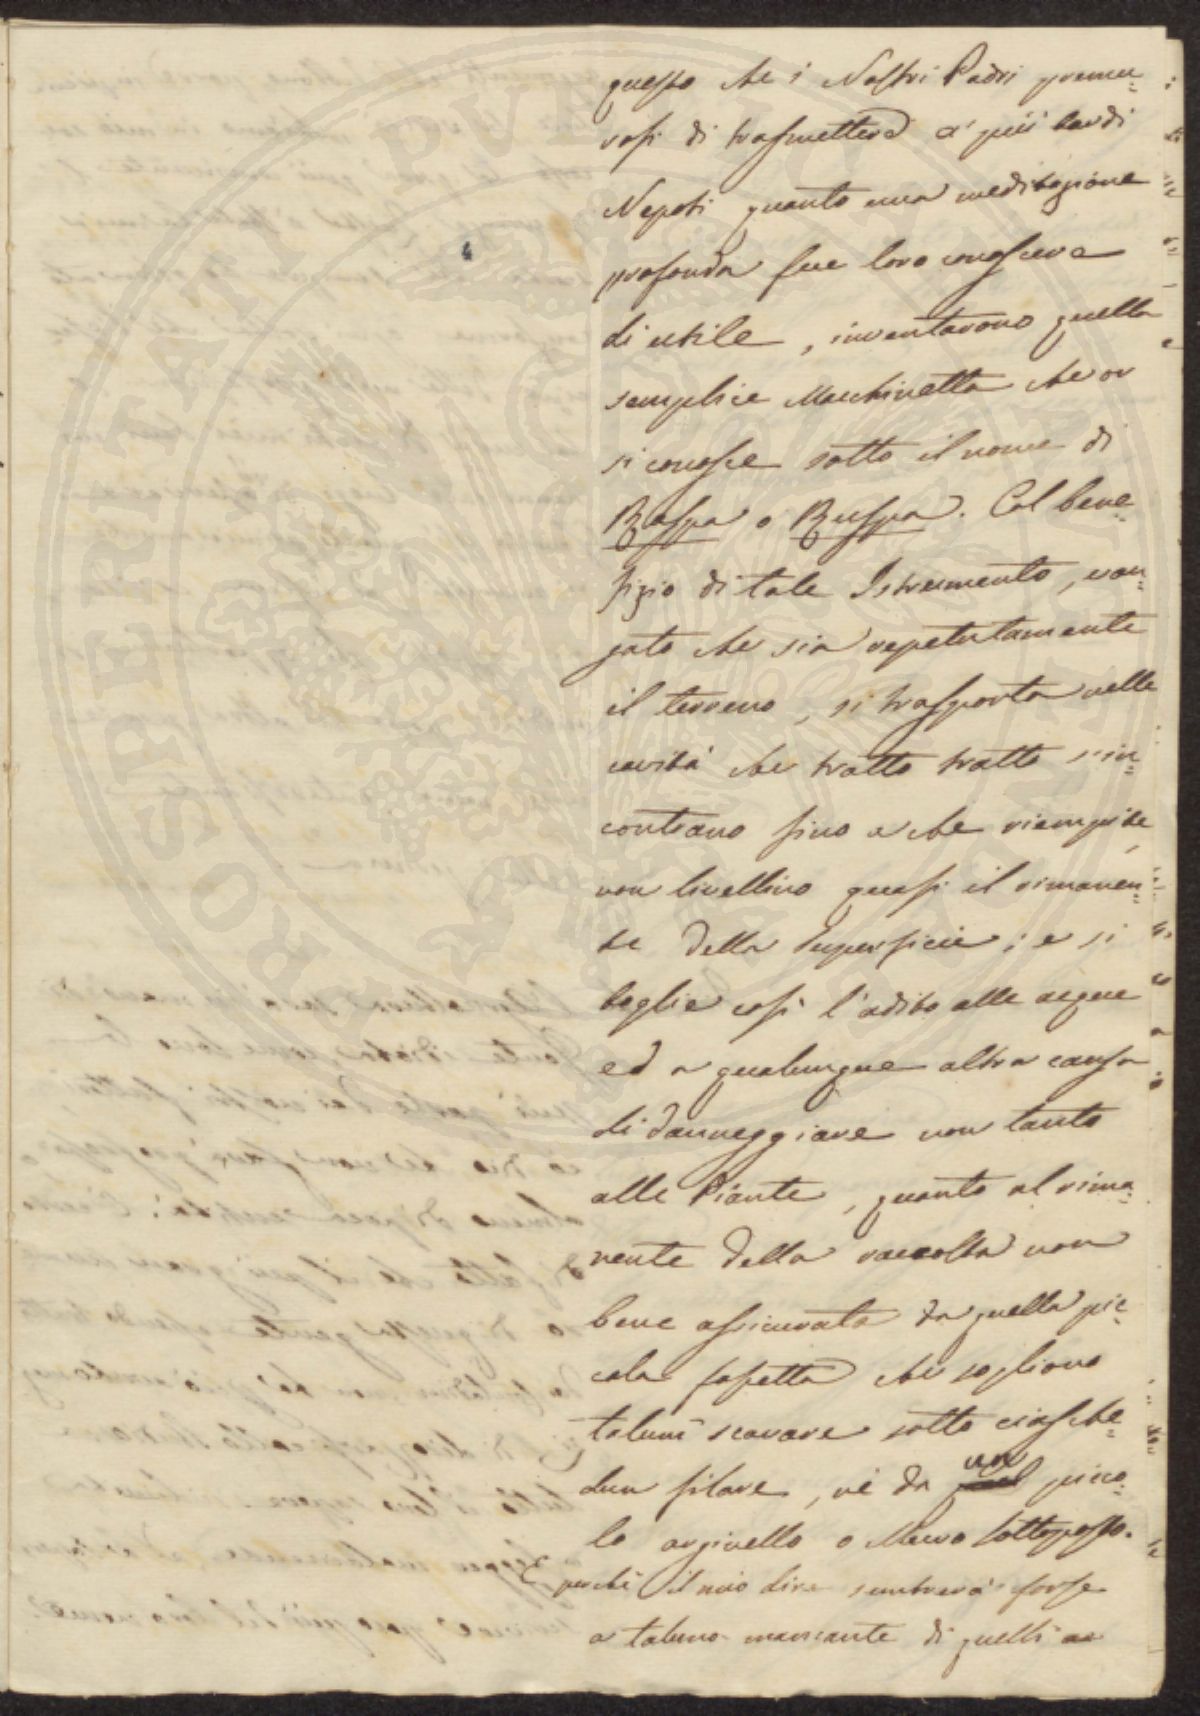 questo che i Nostri Padri premu=
rosi di trasmettere a' più tardi
Nepoti quanto una meditazione
profonda fue loro conoscere
di utile, inventarono quella
semplice Macchinetta che or
si conosce sotto il nome di
Raspa o Ruspa. Col bene=
fizio di tale Istrumento, van=
gato che sia repetutamente
il terreno, si trasporta nelle
cavità che tratto tratto s'in=
contrano fino a che riempite,
non livellino quasi il rimanen=
te della superficie; e si
toglie così l'adito alle acque
ed a qualunque altra causa
di danneggiare non tanto
alle Piante, quanto al rima=
nente della raccolta non
bene assicurata da quella pic=
cola fossetta che sogliono
taluni scavare sotto ciasche=
dun filare, nè da un picco=
lo arginello o Muro sottoposto.
E perchè il mio dire sembrerà forse
a taluno mancante di quelli